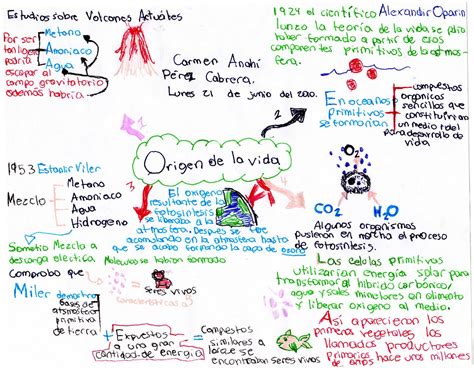 Estudios sobre Volcanes Actuales
Por ser
tan ligero
podria
escapar al
campo gravitatorio
ademas habria
Metano
Amoniaco
Agua
Carmen Anahí
Pérez Cabrera.
Lunes 21 de junio del 2010.
1924 el científico Alexandir Oparin
lanzo la teoría de la vida se pudo
haber formado a partir de esos
componentes primitivos de la atmos-
fera.
En oceános
primitivos
se formarian
compuestos
organicos
sencillos que
constituirian
un medio ideal
para desarrollo de
vida
1
2
Origen de la vida
3
4
1953 Estanlir Viler
Mezclo
Metano
Amoniaco
Agua
Hidrogeno
Sometio Mezcla a
descarga electrica
Moleculas se habian formado
Comprobo que
caracteristicas
Seres vivos
Miler demostro
bases de
atsmosfera
primitiva
de tierra
+
Expuestos
a una gran
cantidad de energia
=
compestos
similares a
los que se
encontraban seres vivos
El oxigeno
resultante de la
fotosintesis
se liberaba a la
atmosfera. Despues se fue
acumulando en la atmosfera hasta
que se acabo formando la capa de ozono
O₂
CO₂
H₂O
Algunos organismos
pusieron en marcha el proceso
de fotosintesis.
Las celulas primitivas
utilizarian energia solar para
transformar al hibrido carbonico/
agua y sales minerales en alimento
y liberar oxigeno al medio.
Asi aparecieron los
primeros vegetales los
llamados productores
primarios hace unos millones
de años